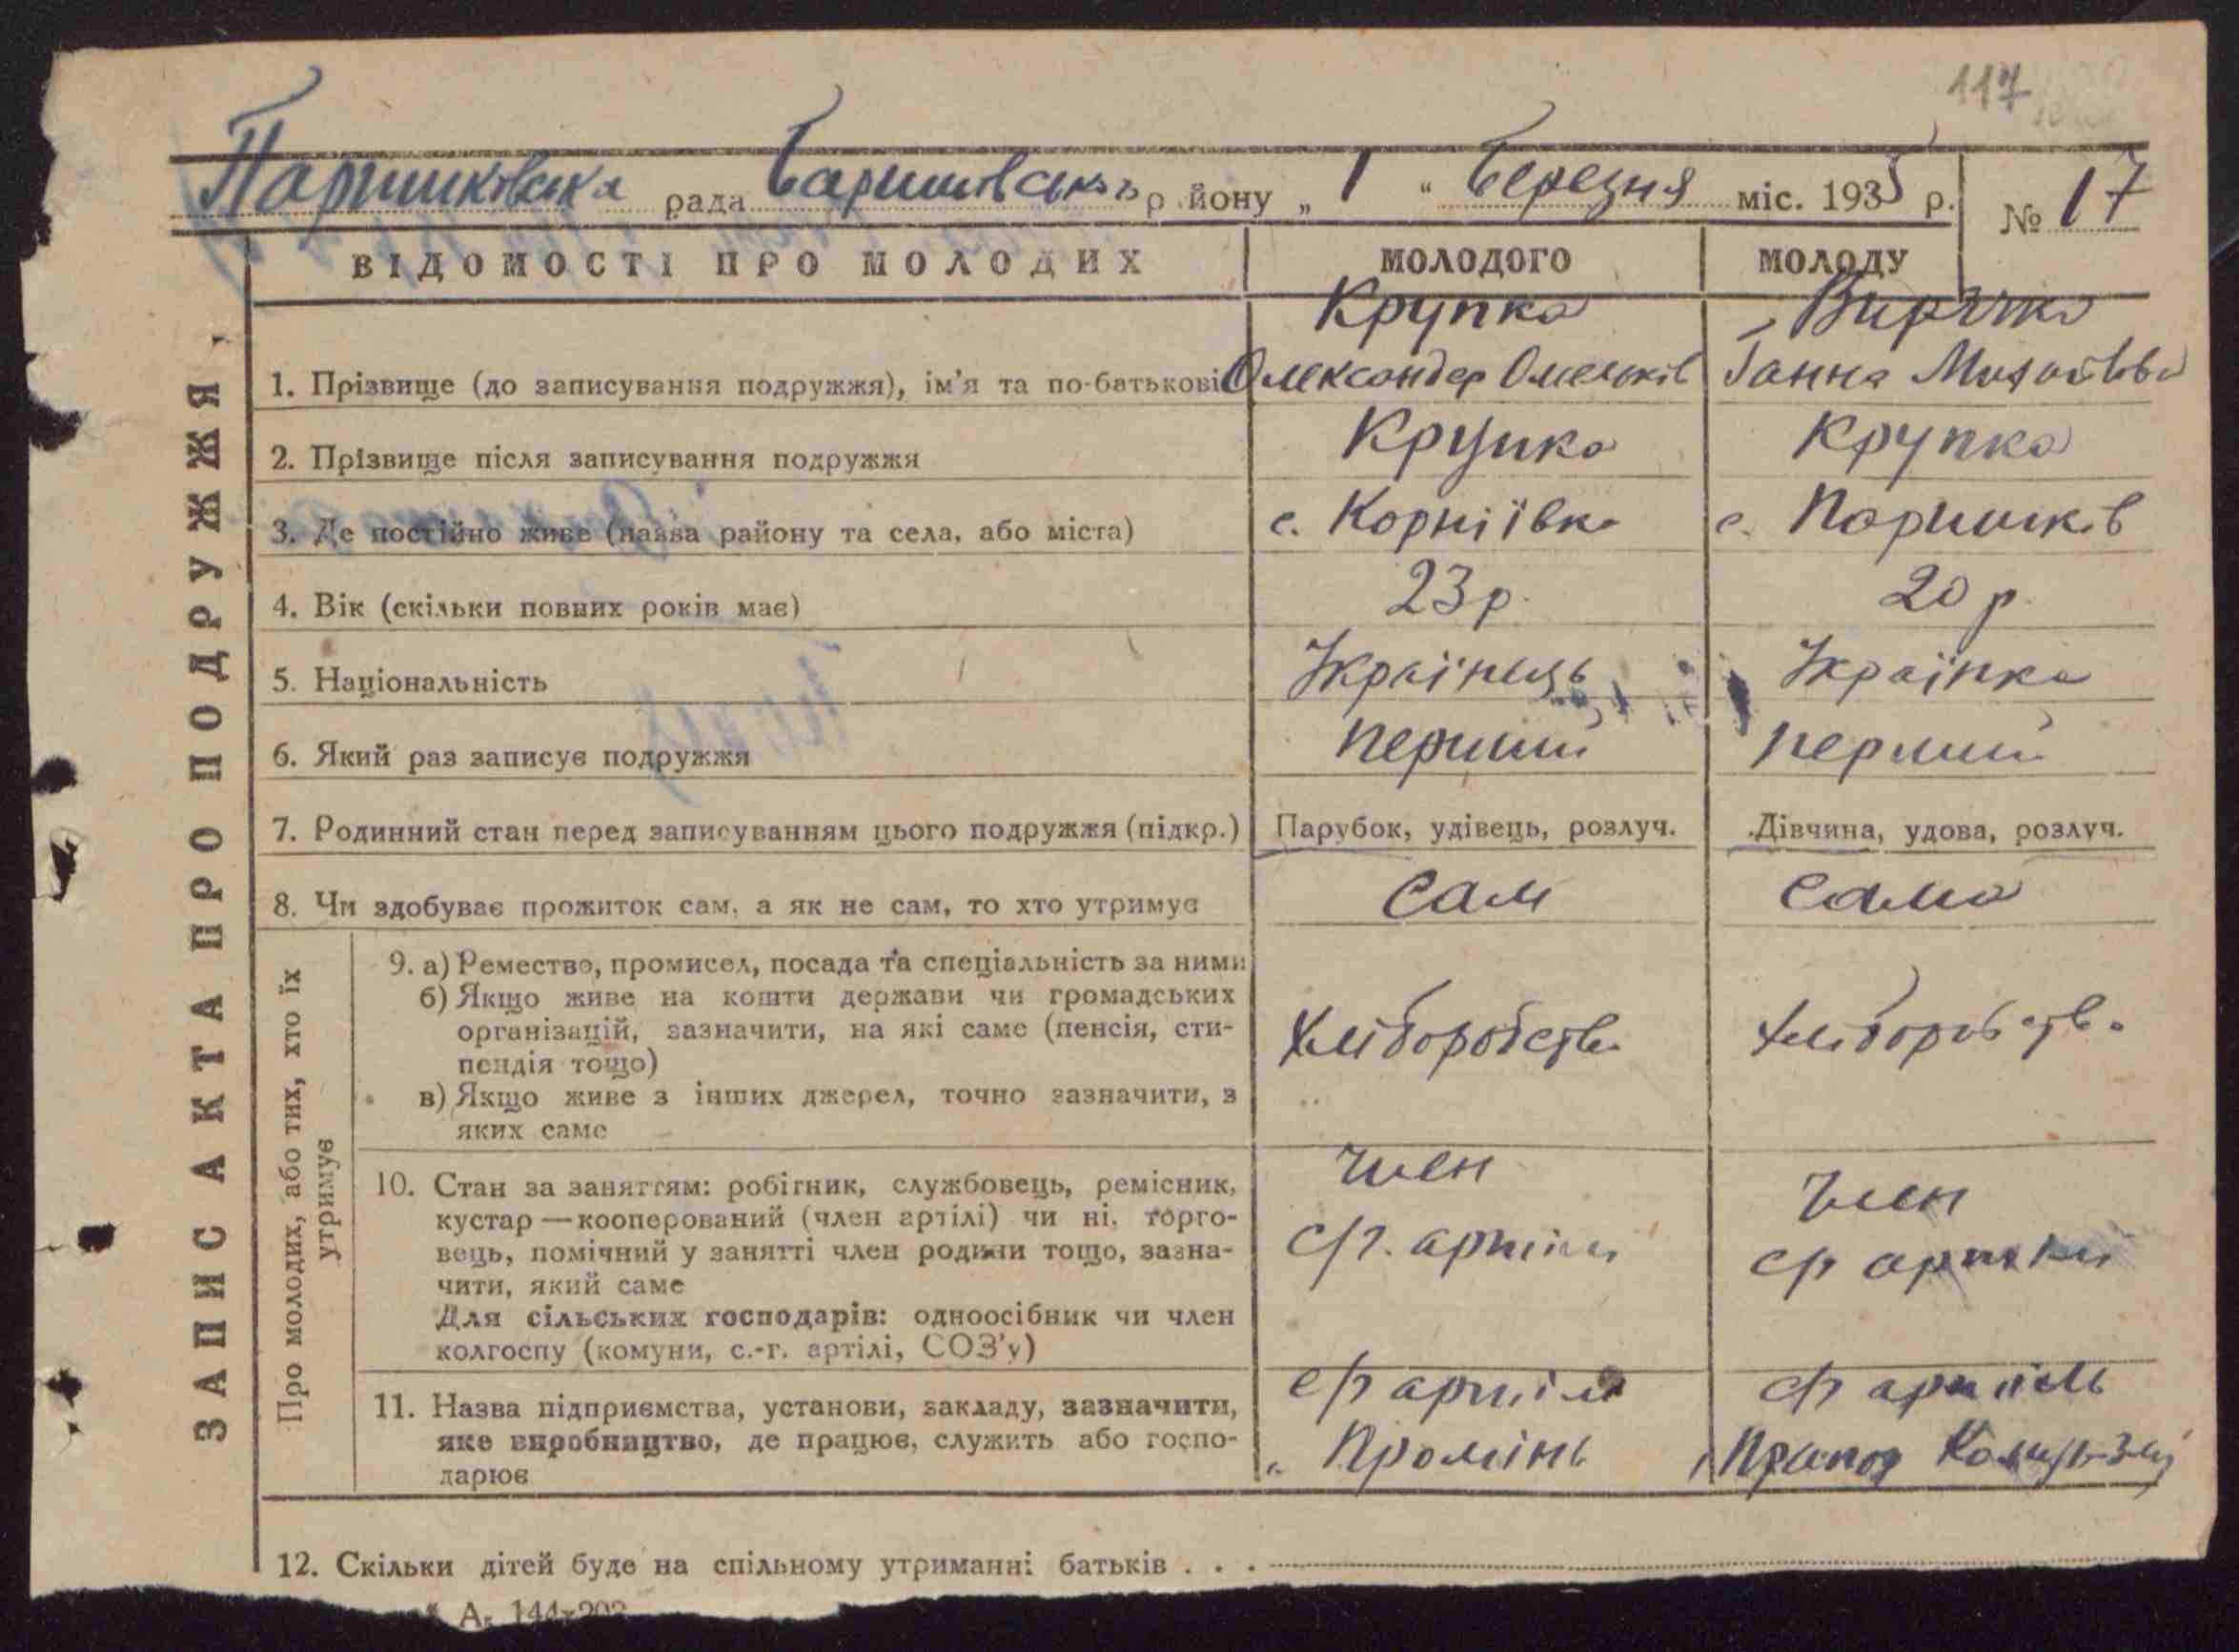 117
Паришківська рада Баришівськ району „ 1 " Березня міс. 1935 р.
№ 17
ЗАПИС АКТА ПРО ПОДРУЖЖЯ
ВІДОМОСТІ ПРО МОЛОДИХ
МОЛОДОГО
МОЛОДУ
1. Прізвище (до записування подружжя), ім'я та по-батькові
Крупка
Олександер Омельків
Ганна
2. Прізвище після записування подружжя
Крупка
Крупка
3. Де постійно живе (назва району та села, або міста)
с. Корніївка
с. Паришків
4. Вік (скільки повних років має)
23 р.
20 р.
5. Національність
Українець
Українка
6. Який раз записує подружжя
перший
перший
7. Родинний стан перед записуванням цього подружжя (підкр.)
Парубок, удівець, розлуч.
Дівчина, удова, розлуч.
8. Чи здобуває прожиток сам, а як не сам, то хто утримує
сам
сама
Про молодих, або тих, хто їх
утримує
9. а) Ремество, промисел, посада та спеціальність за ними
б) Якщо живе на кошти держави чи громадських
організацій, зазначити, на які саме (пенсія, сти-
пендія тощо)
в) Якщо живе з інших джерел, точно зазначити, з
яких саме
Хліборобство
Хліборобство
10. Стан за заняттям: робітник, службовець, ремісник,
кустар — кооперований (член артілі) чи ні, торго-
вець, помічний у занятті член родини тощо, зазна-
чити, який саме
Для сільських господарів: одноосібник чи член
колгоспу (комуни, с.-г. артілі, СОЗ'у)
член
с/г. артіли
член
с/г артіли
11. Назва підприємства, установи, закладу, зазначити,
яке виробництво, де працює, служить або госпо-
дарює
с/г артіль
„ Промінь
с/г артіль
Прапор Комунізму
12. Скільки дітей буде на спільному утриманні батьків . . .
А. 144-203